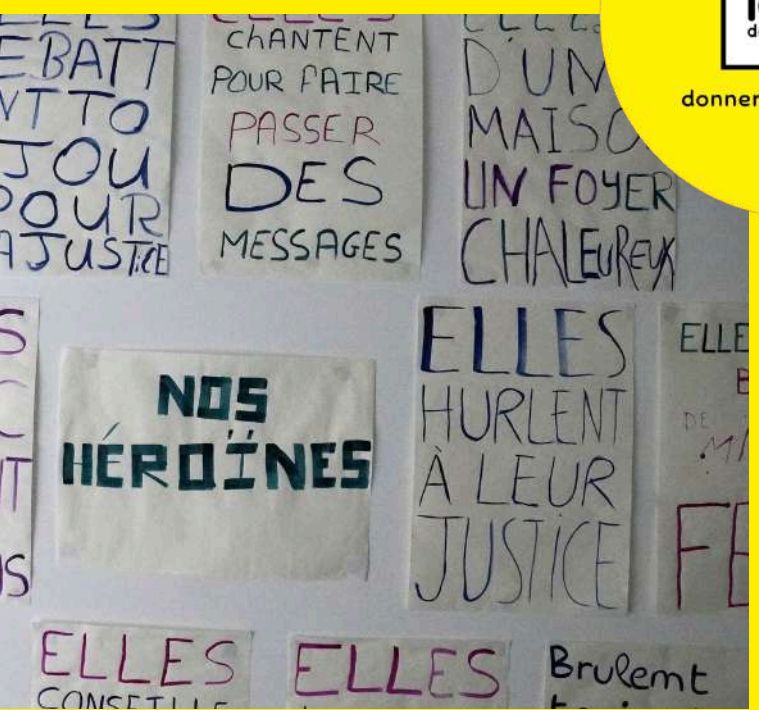 EBATT
NT TO
JOU
POUR
A JUSTICE
CHANTENT
POUR FAIRE
PASSER
DES
MESSAGES
D'UN
MAISO
UN FOYER
CHALEUREUX
NOS
HÉROÏNES
ELLES
HURLENT
À LEUR
JUSTICE
ELLE
ELLES
CONSEILLE
ELLES
Brulemt
donner